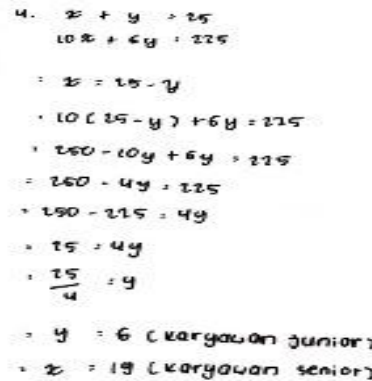 4. x + y = 25
10x + 6y = 225
= x = 25 - y
= 10 ( 25 - y ) + 6y = 225
= 250 - 10y + 6y = 225
= 250 - 4y = 225
= 250 - 225 = 4y
= 25 = 4y
= 25/4 = y
= y = 6 ( karyawan junior )
= x = 19 ( karyawan senior )